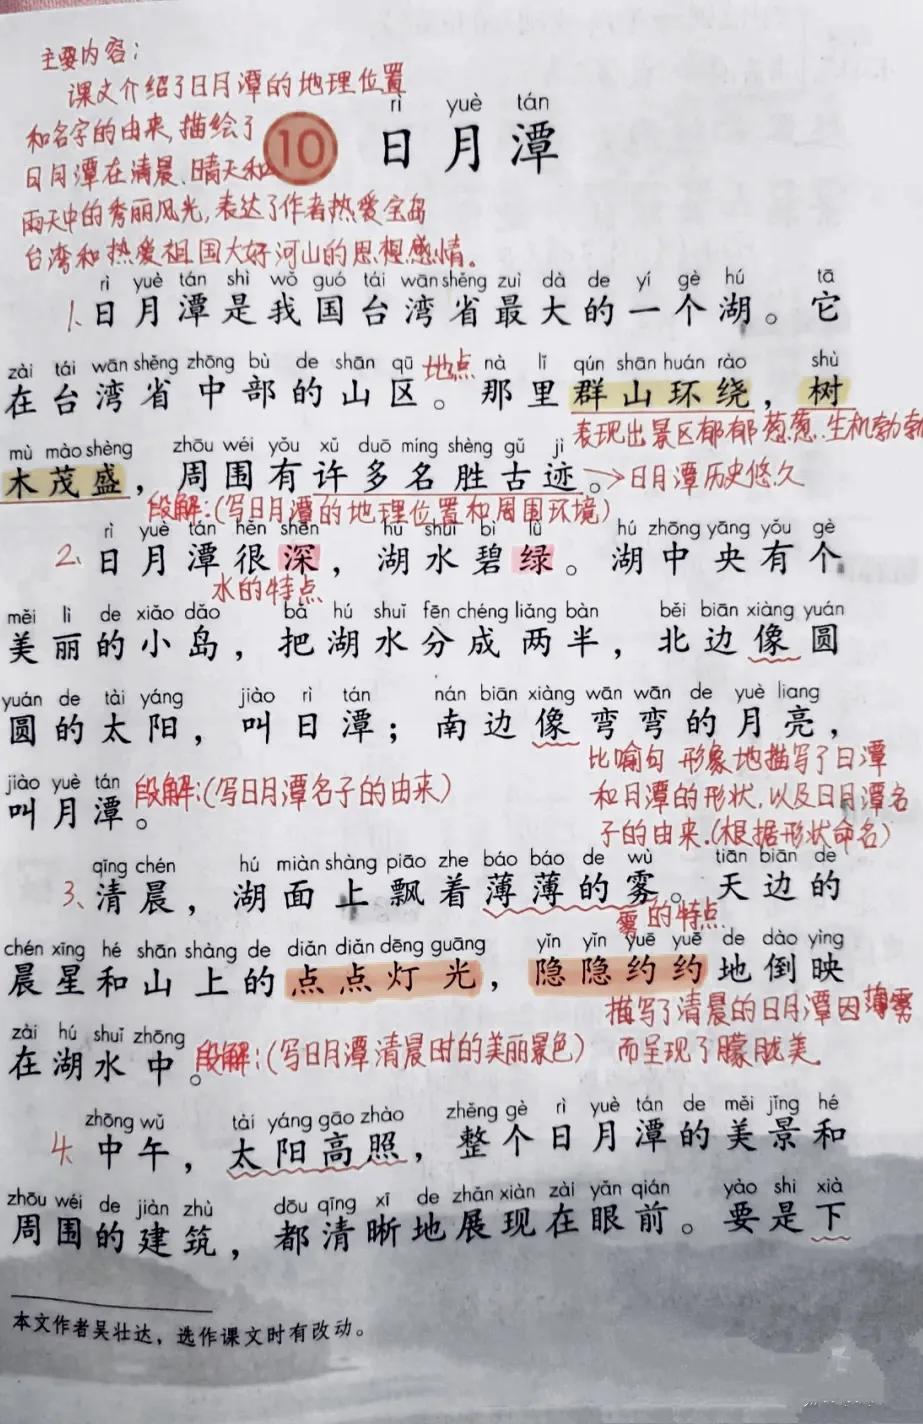 主要内容：
课文介绍了日月潭的地理位置
和名字的由来,描绘了
日月潭在清晨、晴天和
雨天中的秀丽风光,表达了作者热爱宝岛
台湾和热爱祖国大好河山的思想感情。
rì yuè tán
10 日月潭
rì yuè tán shì wǒ guó tái wān shěng zuì dà de yí gè hú tā
1、日月潭是我国台湾省最大的一个湖。它
zài tái wān shěng zhōng bù de shān qū nà lǐ qún shān huán rào shù
在台湾省中部的山区。地点 那里群山环绕，树
表现出景区郁郁葱葱、生机勃勃
mù mào shèng zhōu wéi yǒu xǔ duō míng shèng gǔ jì
木茂盛，周围有许多名胜古迹。→日月潭历史悠久
段解:(写日月潭的地理位置和周围环境)
rì yuè tán hěn shēn hú shuǐ bì lǜ hú zhōng yāng yǒu gè
2、日月潭很深，湖水碧绿。湖中央有个
水的特点
měi lì de xiǎo dǎo bǎ hú shuǐ fēn chéng liǎng bàn běi biān xiàng yuán
美丽的小岛，把湖水分成两半，北边像圆
yuán de tài yáng jiào rì tán nán biān xiàng wān wān de yuè liang
圆的太阳，叫日潭；南边像弯弯的月亮，
jiào yuè tán
叫月潭。段解:(写日月潭名子的由来)
比喻句 形象地描写了日潭
和月潭的形状,以及日月潭名
子的由来.(根据形状命名)
qīng chén hú miàn shàng piāo zhe báo báo de wù tiān biān de
3、清晨，湖面上飘着薄薄的雾。天边的
雾的特点
chén xīng hé shān shàng de diǎn diǎn dēng guāng yǐn yǐn yuē yuē de dào yìng
晨星和山上的点点灯光，隐隐约约地倒映
描写了清晨的日月潭因薄雾
而呈现了朦胧美.
zài hú shuǐ zhōng
在湖水中。段解:(写日月潭清晨时的美丽景色)
zhōng wǔ tài yáng gāo zhào zhěng gè rì yuè tán de měi jǐng hé
4、中午，太阳高照，整个日月潭的美景和
zhōu wéi de jiàn zhù dōu qīng xī de zhǎn xiàn zài yǎn qián yào shi xià
周围的建筑，都清晰地展现在眼前。要是下
本文作者吴壮达，选作课文时有改动。